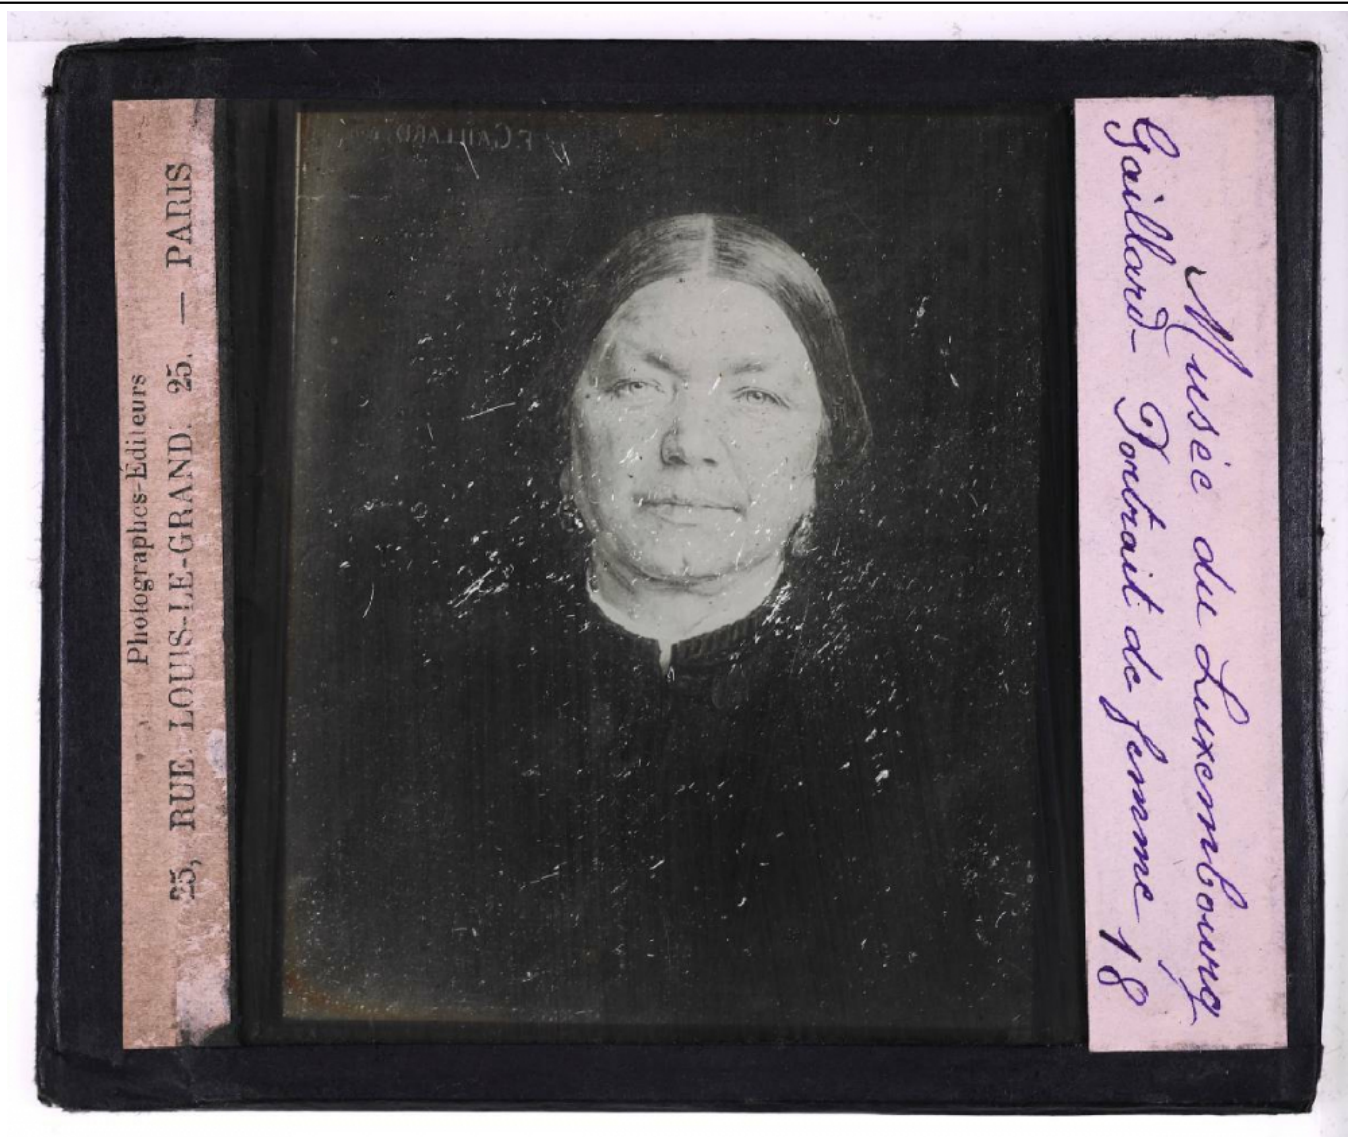 Photographes-Éditeurs
25, RUE LOUIS-LE-GRAND. 25. — PARIS
F. GAILLARD
Musée du Luxembourg
Gaillard- Portrait de femme 18